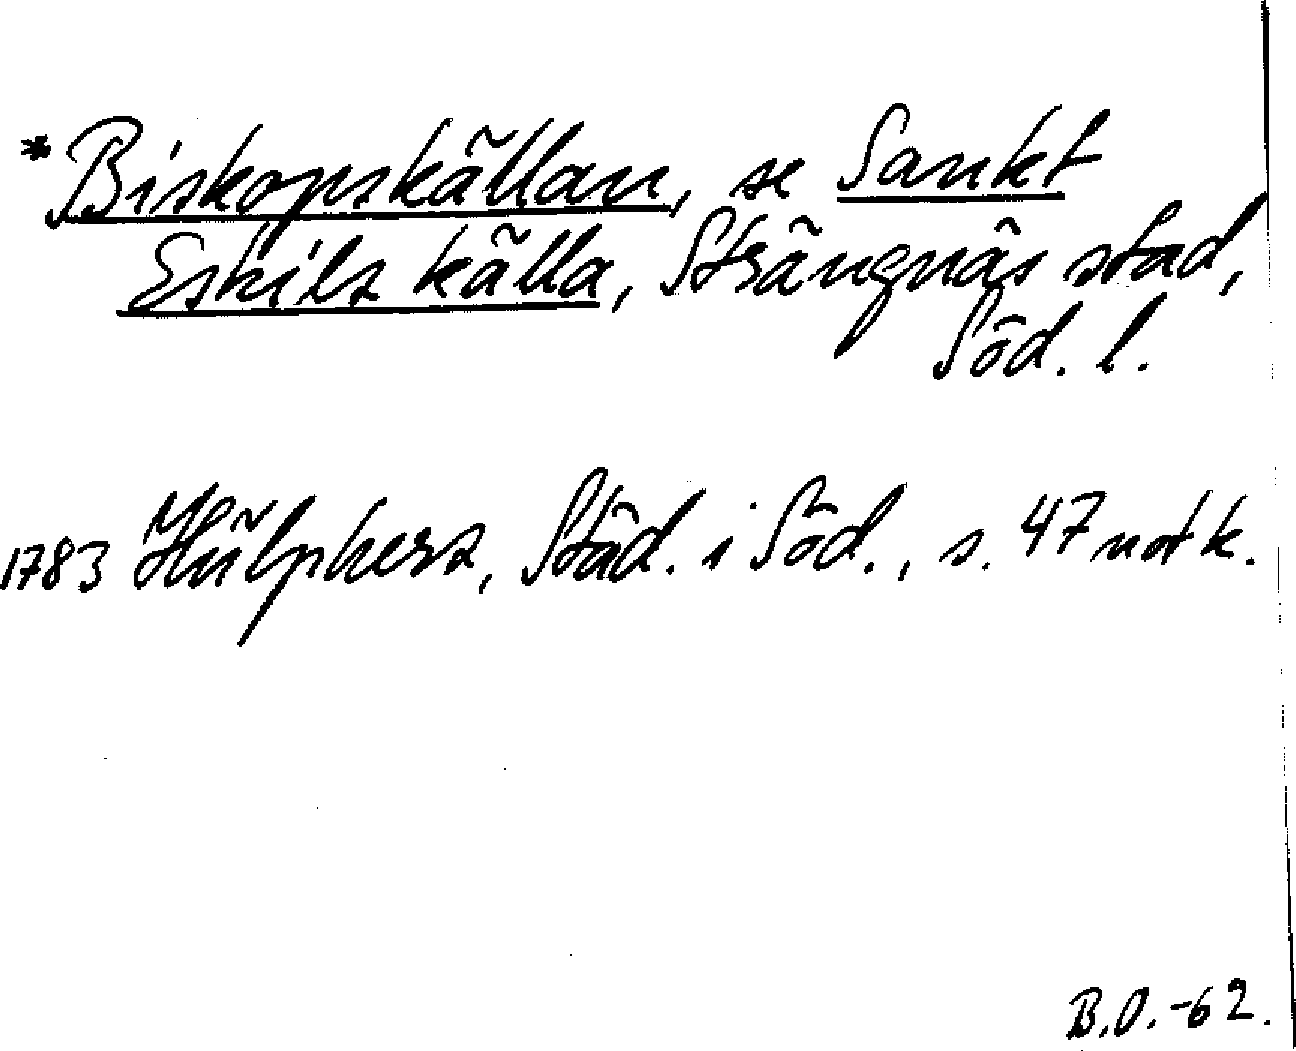 *Biskopskällan, se Sankt
Eskils källa, Strängnäs stad,
Söd. l.
1783 Hülphers, Städ. i Söd., s. 47 not k.
B.O.-62.